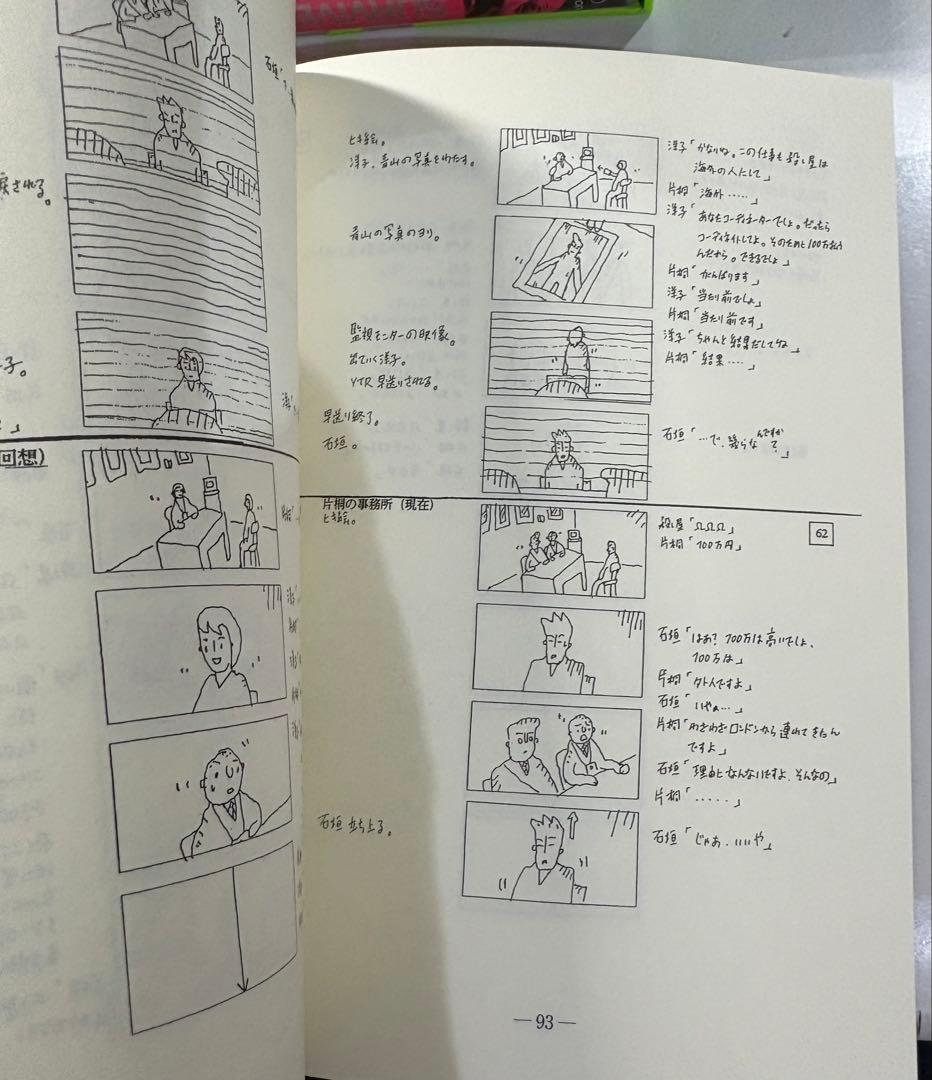 戻される。
子。
」
回想)
ヒキ絵。
洋子、青山の写真をわたす。
洋子「かないね。この仕事も殺し屋は
海外の人にして」
片桐「海外……」
洋子「あなたコーディネーターでしょ。だったら
コーディネイトしてよ。そのために100万払う
んだから。できるでしょ」
青山の写真のヨリ。
片桐「がんばります」
洋子「当たり前でしょ」
片桐「当たり前です」
監視モニターの映像。
出ていく洋子。
VTR 早送りされる。
洋子「ちゃんと結果だしてね」
片桐「結果….」
早送り終了。
石垣。
石垣「…で、殺らないんですか?」
片桐の事務所(現在)
ヒキ絵。
62
殺し屋「ΩΩΩ」
片桐「100万円」
石垣「はあ?100万は高いでしょ、
100万は」
片桐「外人ですよ」
石垣「いやぁ…」
片桐「わざわざロンドンから連れてきたん
ですよ」
石垣「理由になんないですよ、そんなの」
片桐「.....」
石垣立ち上る。
石垣「じゃあ、いいや」
—93—